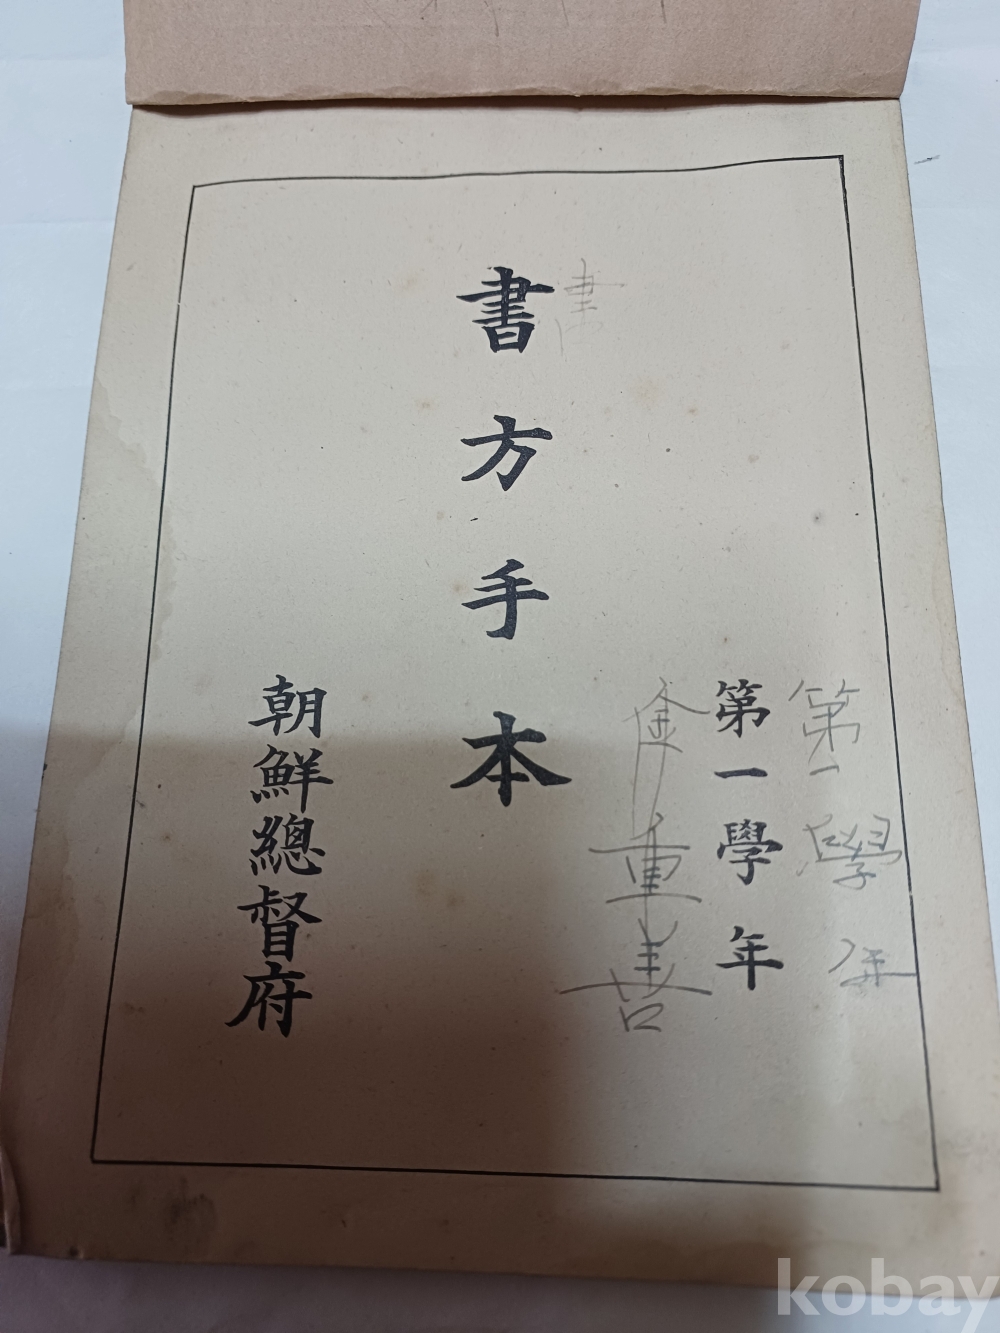 第一學年
第一學年
金重善
書
書方手本
朝鮮總督府
kobay